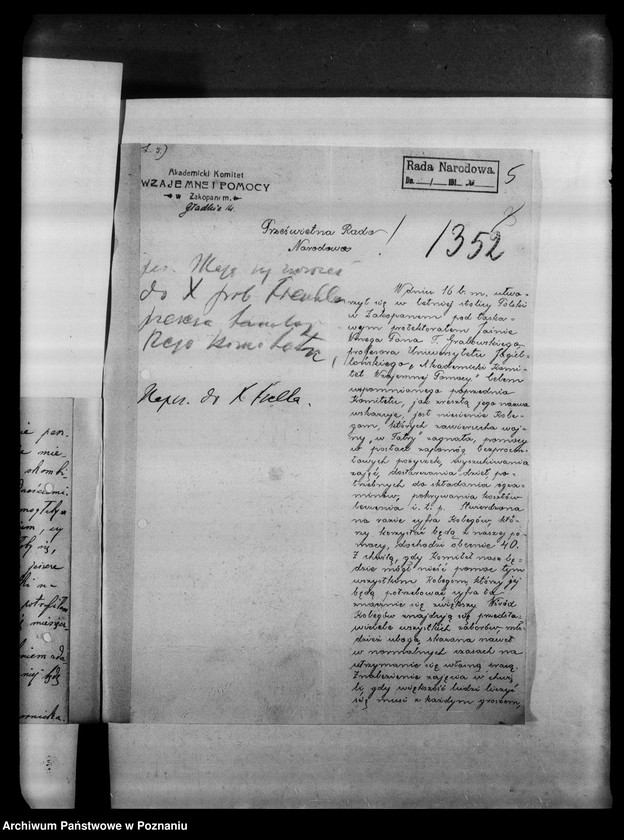 Akademicki Komitet
WZAJEMNEJ POMOCY
w Zakopanem.
Rada Narodowa.
5
Prześwietna Rado
Narodowa!
1352
do X prob
prezesa
tego komitetu,
Napis. do X
W dniu 16 b. m. utwo-
rzył się w letniej stolicy Polski
w Zakopanem pod łaska-
wym protektoratem Jaśnie
Wnego Pana T. Grabowskiego,
profesora Uniwersytetu Jagiel-
lońskiego, „Akademicki Komi-
tet Wzajemnej Pomocy." Celem
wspomnianego poprzednio
Komitetu, jak zresztą jego nazwa
wskazuje, jest niesienie Kole-
gom, których zawierucha woj-
ny „w Tatry" zagnała, pomocy
w postaci zapomóg bezprocen-
towych pożyczek, wyszukiwania
zajęć, dostarczania dzieł po-
trzebnych do składania egza-
minów, pokrywania kosztów
leczenia i. t. p. Stwierdzona
na razie cyfra Kolegów, któ-
rzy korzystać będą z naszej po-
mocy, dochodzi obecnie 40.
Z chwilą, gdy Komitet nasz bę-
dzie mógł nieść pomoc tym
wszystkim Kolegom, którzy jej
będą potrzebować cyfra ta
znacznie się zwiększy. Wśród
Kolegów znajdują się przedsta-
wiciele wszystkich zaborów, mło-
dzież uboga, skazana nawet
w normalnych czasach na
utrzymanie się własną pracą.
Znalezienie zajęcia w chwi-
li, gdy większość ludzi liczyć
się musi z każdym groszem,
Archiwum Państwowe w Poznaniu